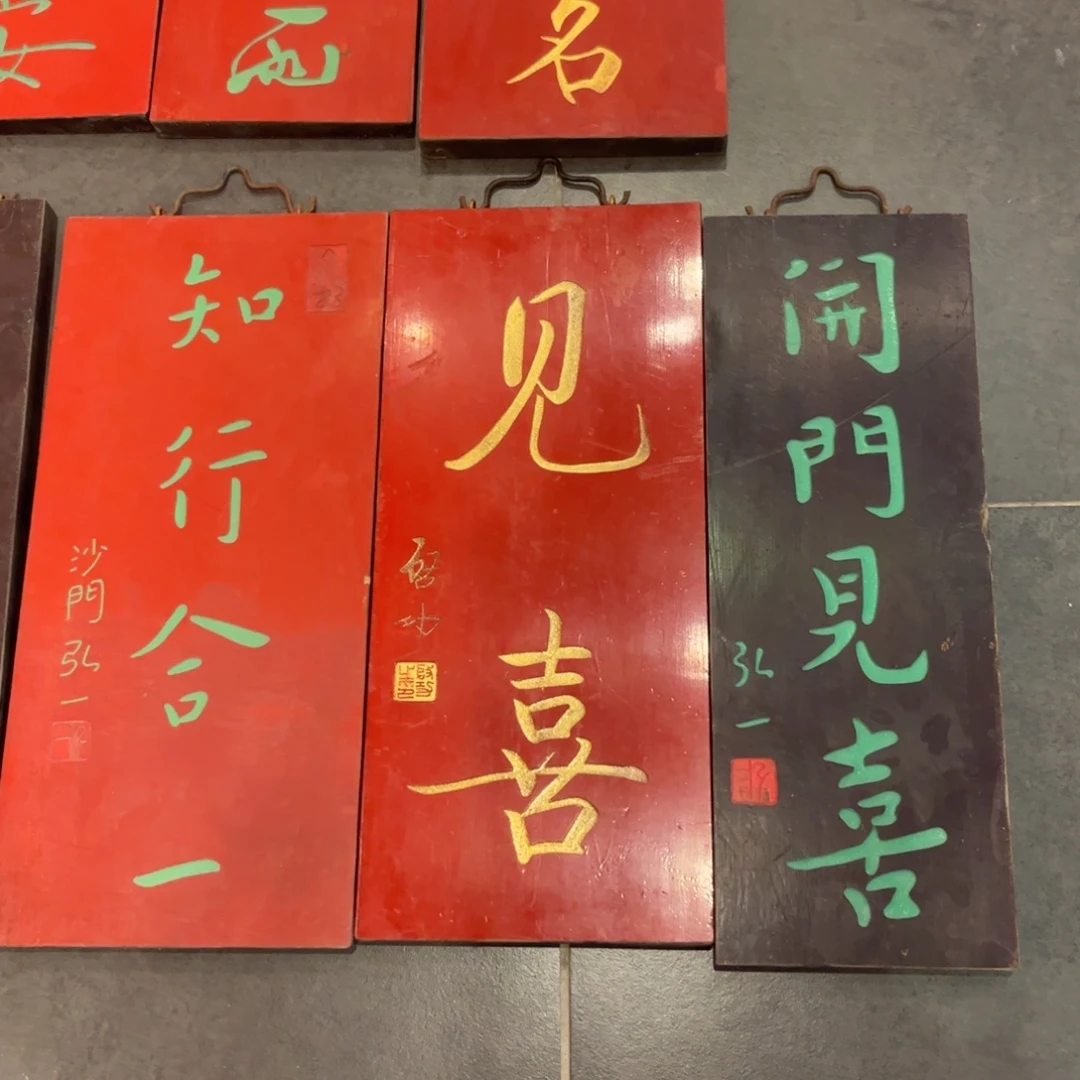 名
知行合一
沙門弘一
见喜
啓功
開門見喜
弘一